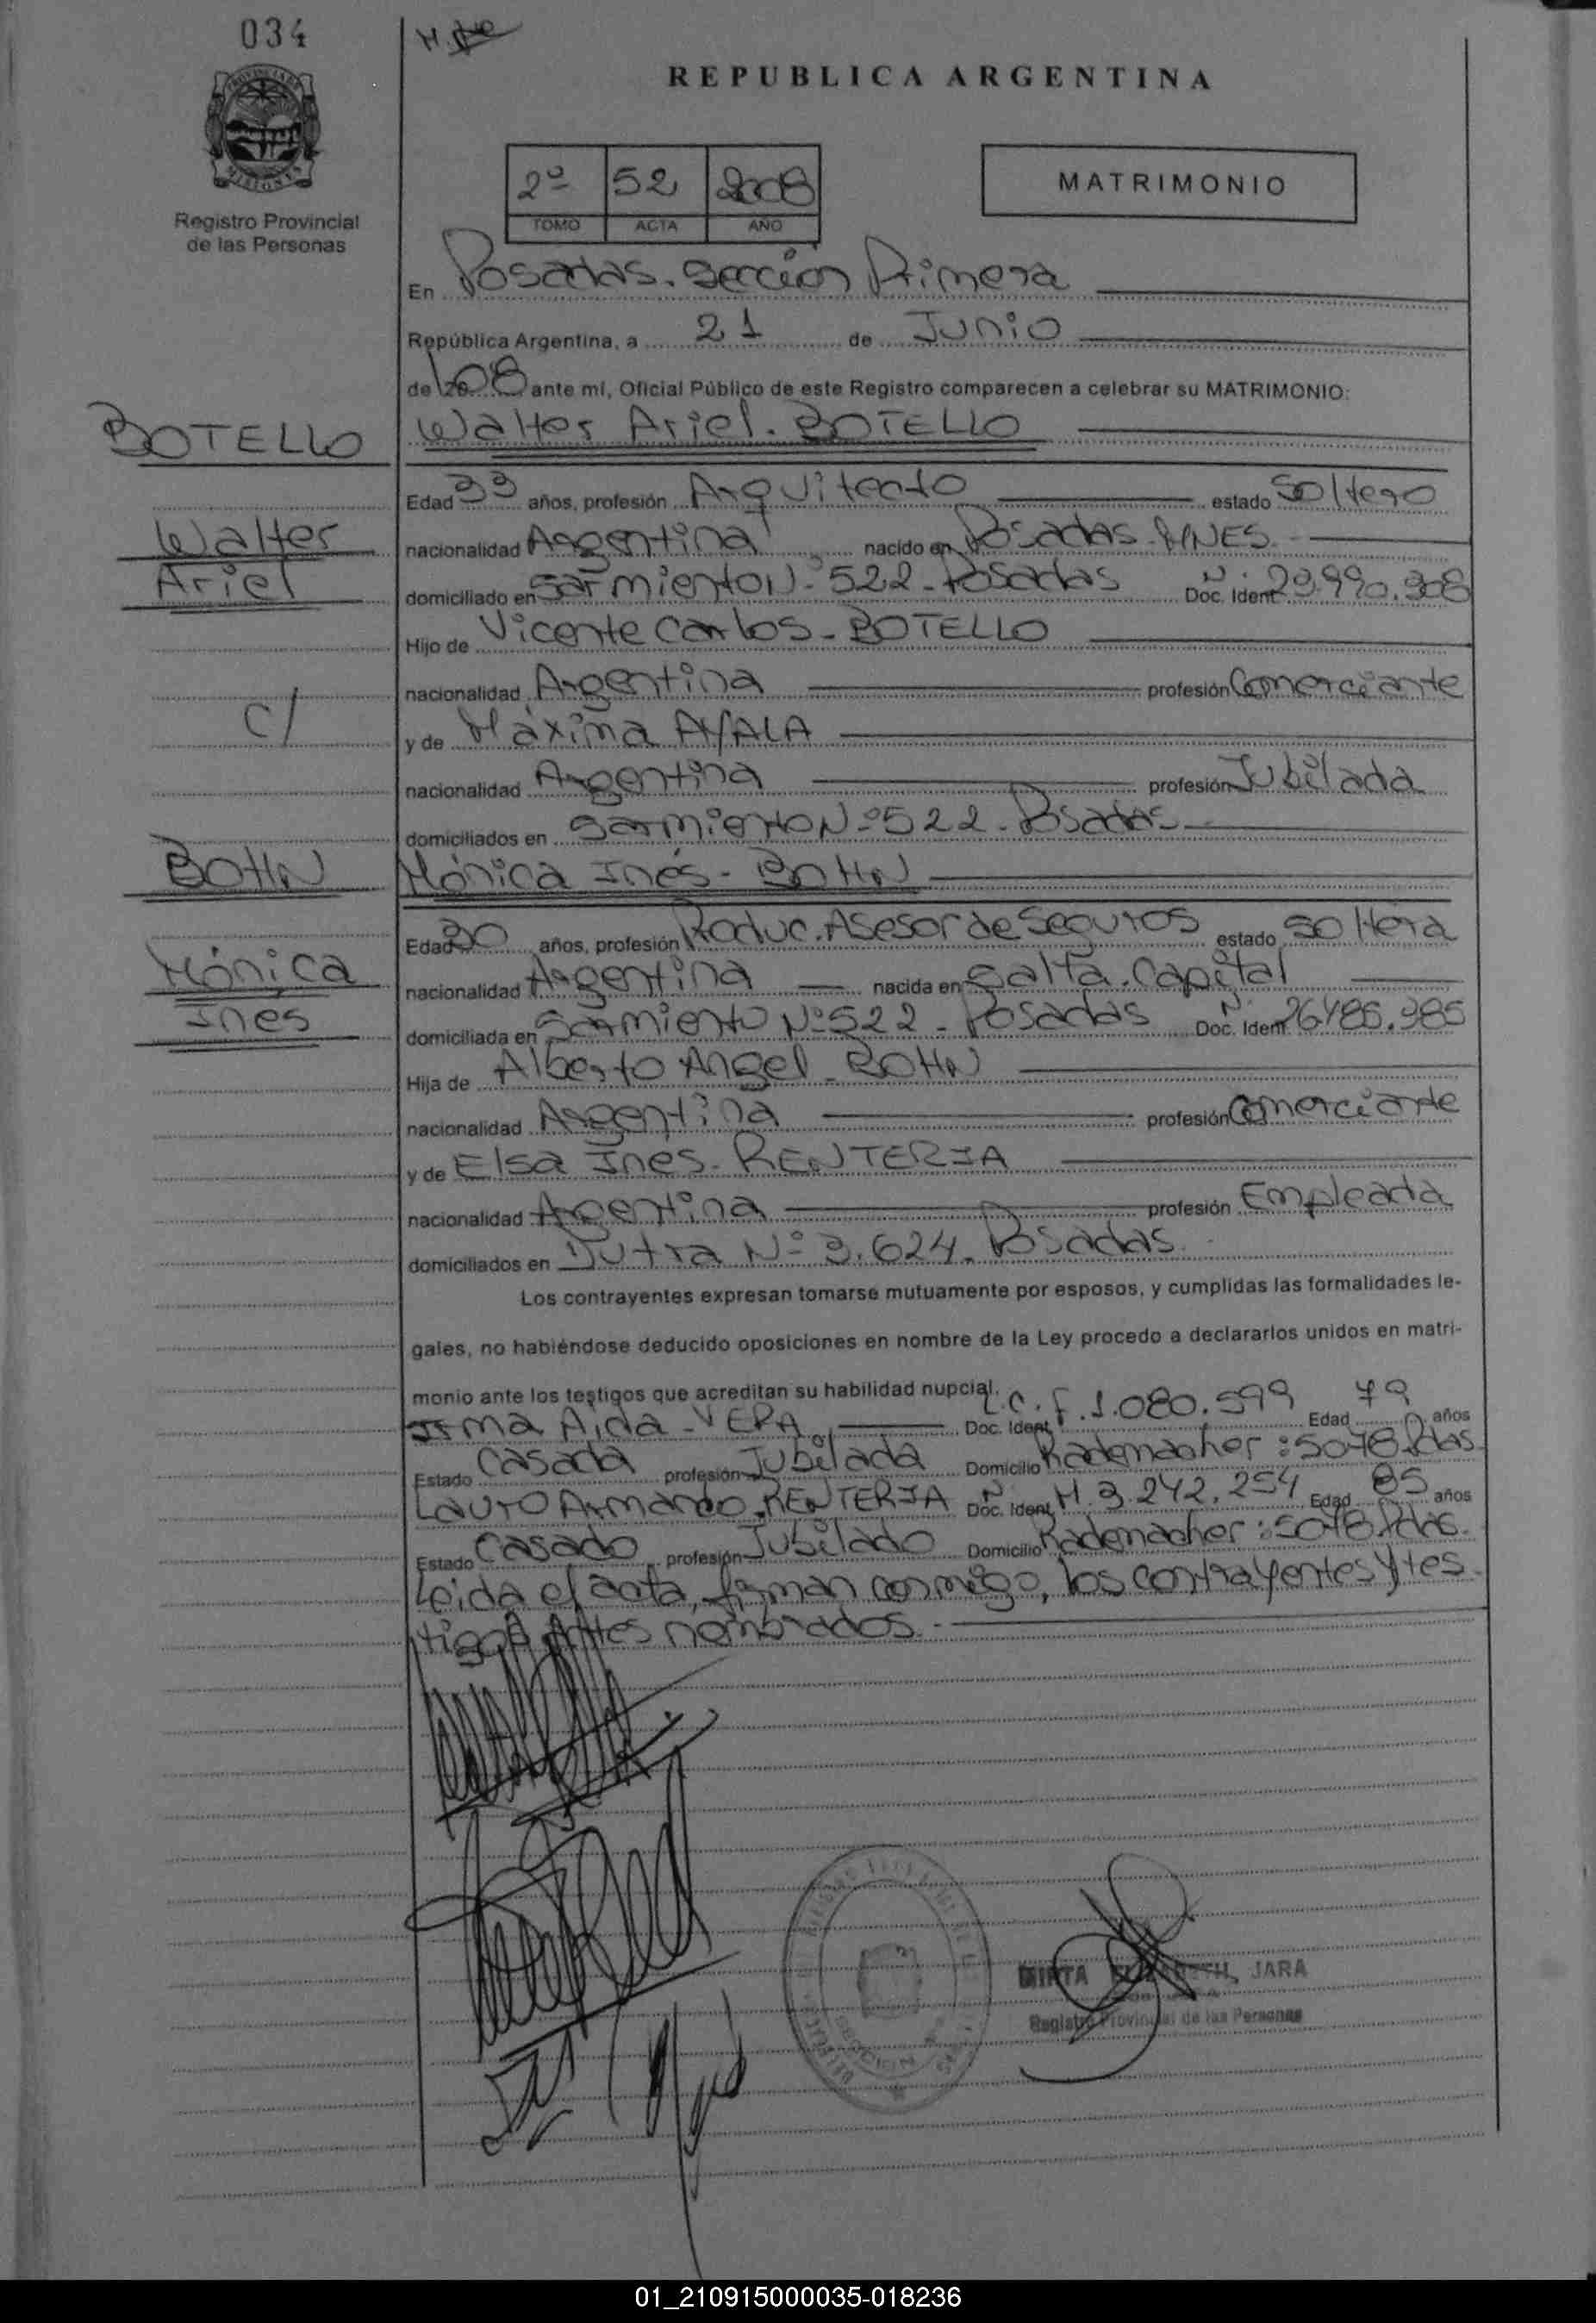 034
REPUBLICA ARGENTINA
2º 52 2008
TOMO ACTA AÑO
MATRIMONIO
Registro Provincial
de las Personas
En Posadas. Sección Primera
República Argentina, a 21 de Junio
de 2008 ante mí, Oficial Público de este Registro comparecen a celebrar su MATRIMONIO:
BOTELLO
Walter Ariel. BOTELLO
Edad 33 años, profesión Arquitecto estado Soltero
Walter
nacionalidad Argentina nacido en Posadas. MNES.
Ariel
domiciliado en Sarmiento N.º 522 - Posadas Doc. Ident. Nº 23.990.308
Hijo de Vicente Carlos - BOTELLO
nacionalidad Argentina profesión Comerciante
c/
y de Máxima AYALA
nacionalidad Argentina profesión Jubilada
domiciliados en Sarmiento Nº 522 - Posadas
BOHN
Mónica Inés - BOHN
Edad 30 años, profesión Produc. Asesor de Seguros estado Soltera
Mónica
nacionalidad Argentina nacida en Salta. Capital
Ines
domiciliada en Sarmiento Nº 522 - Posadas Doc. Ident. Nº 26.485.385
Hija de Alberto Angel - BOHN
nacionalidad Argentina profesión Comerciante
y de Elsa Ines - RENTERIA
nacionalidad Argentina profesión Empleada
domiciliados en Dutra Nº 3.624. Posadas.
Los contrayentes expresan tomarse mutuamente por esposos, y cumplidas las formalidades le-
gales, no habiéndose deducido oposiciones en nombre de la Ley procedo a declararlos unidos en matri-
monio ante los testigos que acreditan su habilidad nupcial.
Irma Aida - VERA Doc. Ident. L.C. F. 1.080.599 Edad 79 años
Estado Casada profesión Jubilada Domicilio Rademacher: 5078. Pdas.
Lauro Armando. RENTERIA Doc. Ident. Nº M. 3.242.254 Edad 85 años
Estado Casado profesión Jubilado Domicilio Rademacher: 5078. Pdas.
Leida el acta, firman conmigo, los contrayentes y tes
tigos antes nombrados.
MIRTA ELIZABETH JARA
Registro Provincial de las Personas
01_210915000035-018236